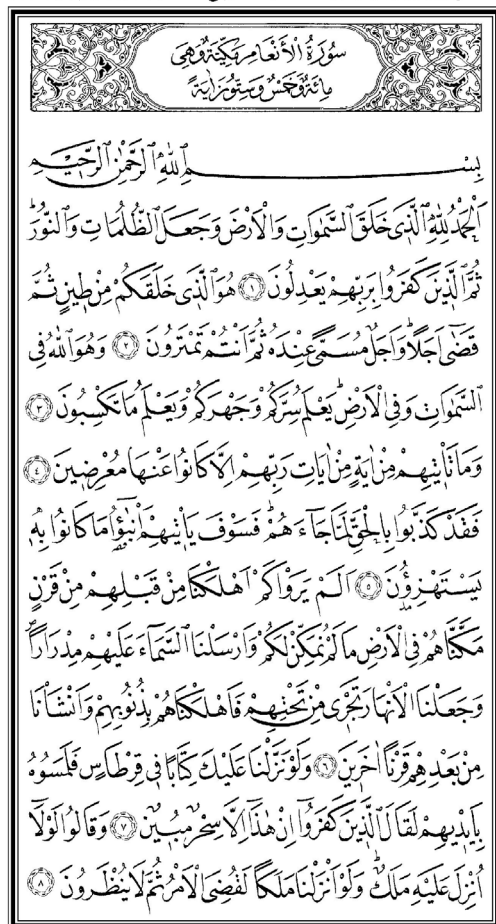 سُورَةُ الْاَنْعَامِ مَكِّيَّةٌ وَهِيَ
مِائَةٌ وَخَمْسٌ وَسِتُّونَ اٰيَةً
بِسْمِ اللّٰهِ الرَّحْمٰنِ الرَّحٖيمِ
اَلْحَمْدُ لِلّٰهِ الَّذٖى خَلَقَ السَّمٰوَاتِ وَالْاَرْضَ وَجَعَلَ الظُّلُمَاتِ وَالنُّورَؕ
ثُمَّ الَّذٖينَ كَفَرُوا بِرَبِّهِمْ يَعْدِلُونَ ﴿١﴾ هُوَ الَّذٖى خَلَقَكُمْ مِنْ طٖينٍ ثُمَّ
قَضٰٓى اَجَلًاؕ وَاَجَلٌ مُسَمًّى عِنْدَهُ ثُمَّ اَنْتُمْ تَمْتَرُونَ ﴿٢﴾ وَهُوَ اللّٰهُ فِى
السَّمٰوَاتِ وَفِى الْاَرْضِؕ يَعْلَمُ سِرَّكُمْ وَجَهْرَكُمْ وَيَعْلَمُ مَا تَكْسِبُونَ ﴿٣﴾
وَمَا تَاْتٖيهِمْ مِنْ اٰيَةٍ مِنْ اٰيَاتِ رَبِّهِمْ اِلَّا كَانُوا عَنْهَا مُعْرِضٖينَ ﴿٤﴾
فَقَدْ كَذَّبُوا بِالْحَقِّ لَمَّا جَٓاءَهُمْؕ فَسَوْفَ يَاْتٖيهِمْ اَنْبٰٓؤُ۬ا مَا كَانُوا بِهٖ
يَسْتَهْزِؤُ۫نَ ﴿٥﴾ اَلَمْ يَرَوْا كَمْ اَهْلَكْنَا مِنْ قَبْلِهِمْ مِنْ قَرْنٍ
مَكَّنَّاهُمْ فِى الْاَرْضِ مَا لَمْ نُمَكِّنْ لَكُمْ وَاَرْسَلْنَا السَّمَٓاءَ عَلَيْهِمْ مِدْرَارًاࣕ
وَجَعَلْنَا الْاَنْهَارَ تَجْرٖى مِنْ تَحْتِهِمْ فَاَهْلَكْنَاهُمْ بِذُنُوبِهِمْ وَاَنْشَاْنَا
مِنْ بَعْدِهِمْ قَرْنًا اٰخَرٖينَ ﴿٦﴾ وَلَوْ نَزَّلْنَا عَلَيْكَ كِتَابًا فٖى قِرْطَاسٍ فَلَمَسُوهُ
بِاَيْدٖيهِمْ لَقَالَ الَّذٖينَ كَفَرُٓوا اِنْ هٰذَٓا اِلَّا سِحْرٌ مُبٖينٌ ﴿٧﴾ وَقَالُوا لَوْلَٓا
اُنْزِلَ عَلَيْهِ مَلَكٌؕ وَلَوْ اَنْزَلْنَا مَلَكًا لَقُضِىَ الْاَمْرُ ثُمَّ لَا يُنْظَرُونَ ﴿٨﴾